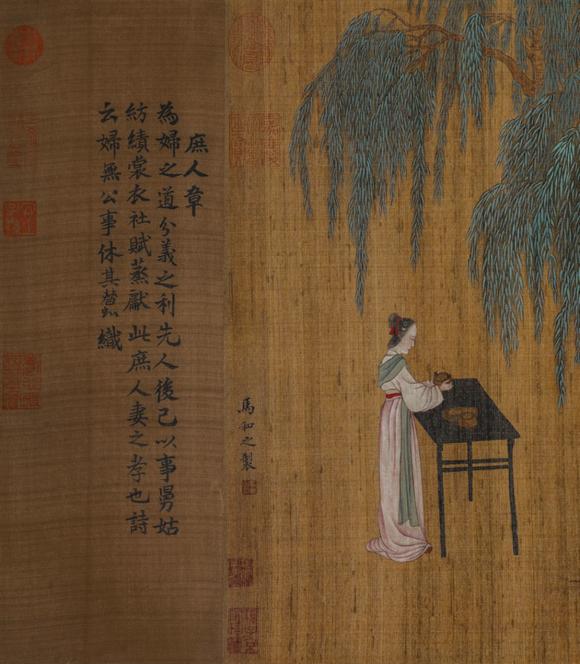 庶人章
為婦之道分義之利先人後己以事舅姑
紡績裳衣社賦蒸獻此庶人妻之孝也詩
云婦無公事休其蠶織
馬和之製